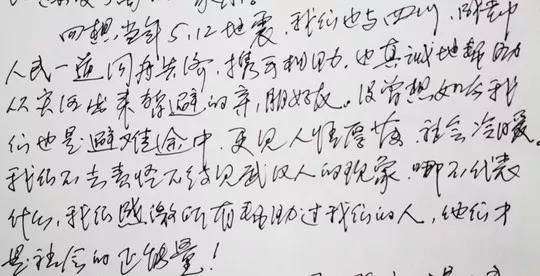 回想当年5.12地震，我们也与四川、陕
人民一道同舟共济，携手相助，也真诚地帮助
从灾区出来躲避的亲朋好友。没曾想如今我
们也是避难途中，更见人情厚薄，社会冷暖。
我们不去责怪不待见武汉人的现象，哪不代表
什么，我们感激所有帮助过我们的人，他们才
是社会的正能量！